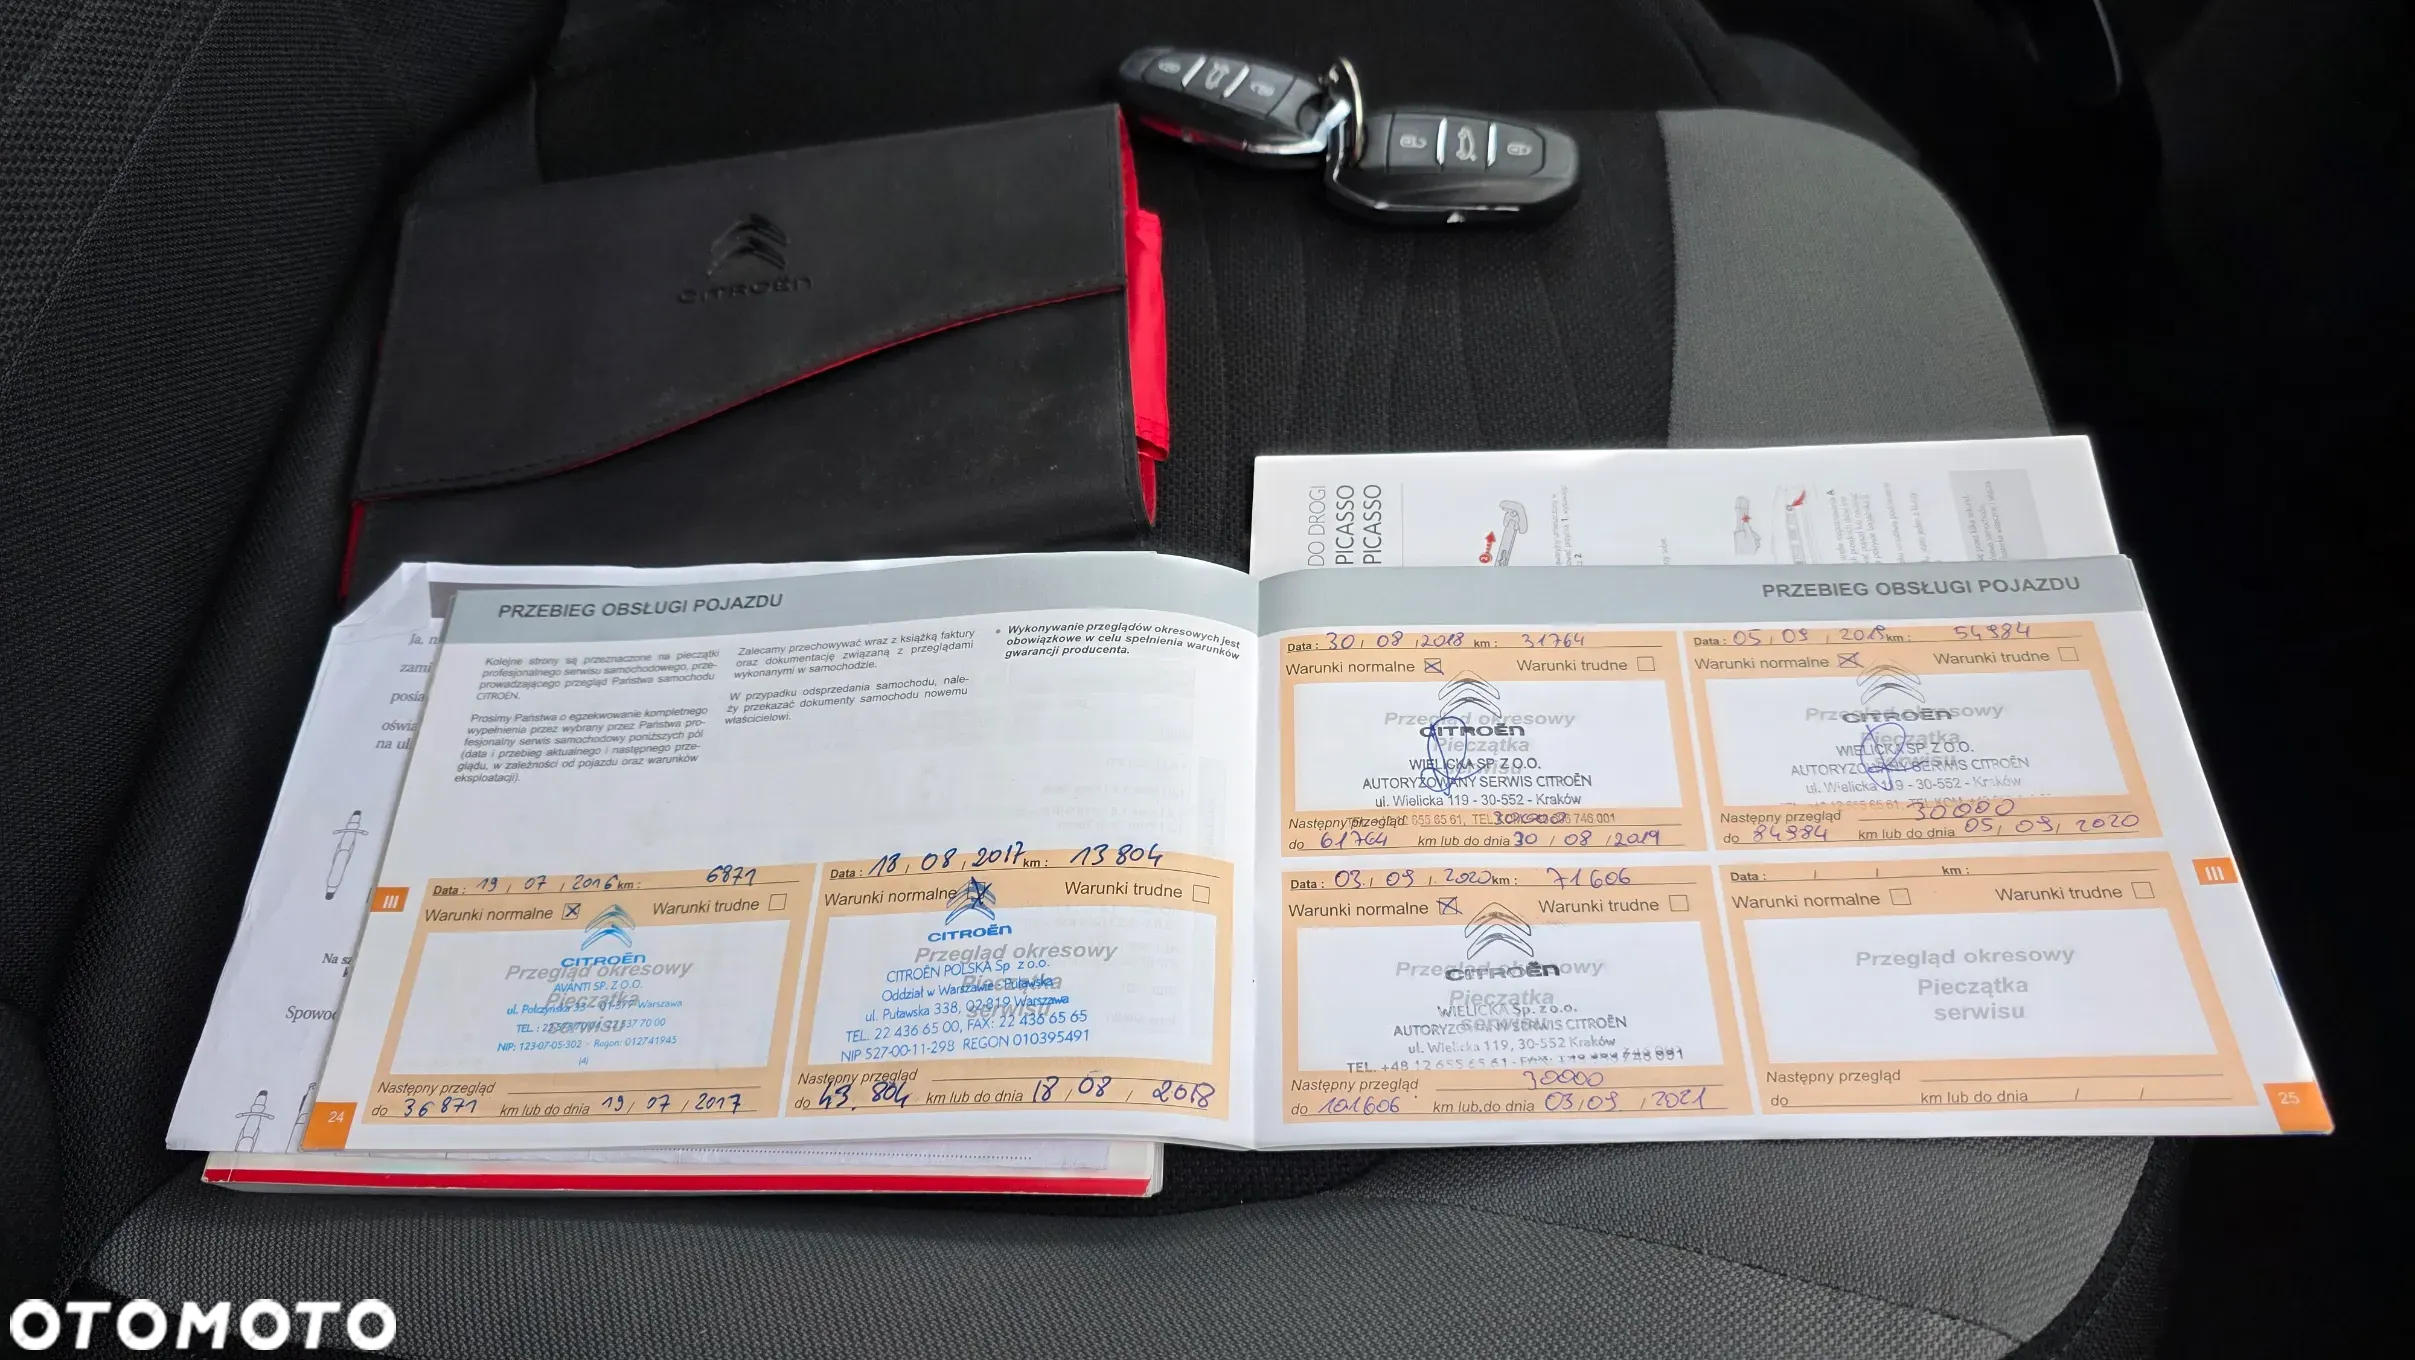 CITROËN
DO DROGI
PICASSO
PICASSO
PRZEBIEG OBSŁUGI POJAZDU
Kolejne strony są przeznaczone na pieczątki
profesjonalnego serwisu samochodowego, prze-
prowadzającego przegląd Państwa samochodu
CITROËN.
Prosimy Państwa o egzekwowanie kompletnego
wypełnienia przez wybrany przez Państwa pro-
fesjonalny serwis samochodowy poniższych pól
(data i przebieg aktualnego i następnego prze-
glądu, w zależności od pojazdu oraz warunków
eksploatacji).
Zalecamy przechowywać wraz z książką faktury
oraz dokumentację związaną z przeglądami
wykonanymi w samochodzie.
W przypadku odsprzedania samochodu, nale-
ży przekazać dokumenty samochodu nowemu
właścicielowi.
• Wykonywanie przeglądów okresowych jest
obowiązkowe w celu spełnienia warunków
gwarancji producenta.
III
Data : 19 / 07 / 2016 km : 6871
Warunki normalne Warunki trudne
CITROËN
Przegląd okresowy
AVANTI SP. Z O.O.
Pieczątka
ul. Połczyńska 33 - 01-377 Warszawa
serwisu
NIP: 123-07-05-302 - Regon: 012741945
(4)
Następny przegląd
do 36871 km lub do dnia 19 / 07 / 2017
24
Data : 18 / 08 / 2017 km : 13804
Warunki normalne Warunki trudne
CITROËN
Przegląd okresowy
CITROËN POLSKA Sp. z o.o.
Pieczątka
Oddział w Warszawie - Puławska
ul. Puławska 338, 02-819 Warszawa
serwisu
TEL. 22 436 65 00, FAX: 22 436 65 65
NIP 527-00-11-298 REGON 010395491
Następny przegląd
do 43.804 km lub do dnia 18 / 08 / 2018
PRZEBIEG OBSŁUGI POJAZDU
Data : 30 / 08 / 2018 km : 31764
Warunki normalne Warunki trudne
Przegląd okresowy
CITROËN
Pieczątka
WIELICKA SP. Z O.O.
AUTORYZOWANY SERWIS CITROËN
ul. Wielicka 119 - 30-552 - Kraków
Następny przegląd 30000
do 61764 km lub do dnia 30 / 08 / 2019
Data : 05 / 09 / 2019 km : 54984
Warunki normalne Warunki trudne
Przegląd okresowy
CITROËN
Pieczątka
WIELICKA SP. Z O.O.
AUTORYZOWANY SERWIS CITROËN
ul. Wielicka 119 - 30-552 - Kraków
Następny przegląd 30000
do 84984 km lub do dnia 05 / 09 / 2020
Data : 03 / 09 / 2020 km : 71606
Warunki normalne Warunki trudne
Przegląd okresowy
CITROËN
Pieczątka
WIELICKA Sp. z o.o.
AUTORYZOWANY SERWIS CITROËN
ul. Wielicka 119, 30-552 Kraków
Następny przegląd 30000
do 101606 km lub do dnia 03 / 09 / 2021
Data : / / km :
Warunki normalne Warunki trudne
Przegląd okresowy
Pieczątka
serwisu
Następny przegląd
do km lub do dnia / /
III
25
OTOMOTO